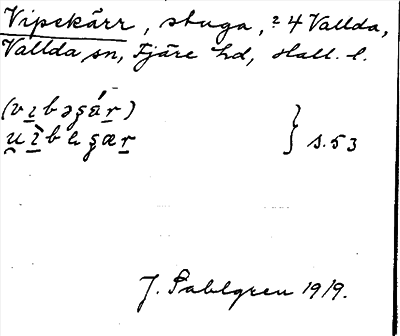 Vipekärr, stuga, 2 4 Vallda,
Vallda sn, Fjäre hd, Hall. l.
(vɪbəgár)
uìbegær } s. 53
J. Sahlgren 1919.